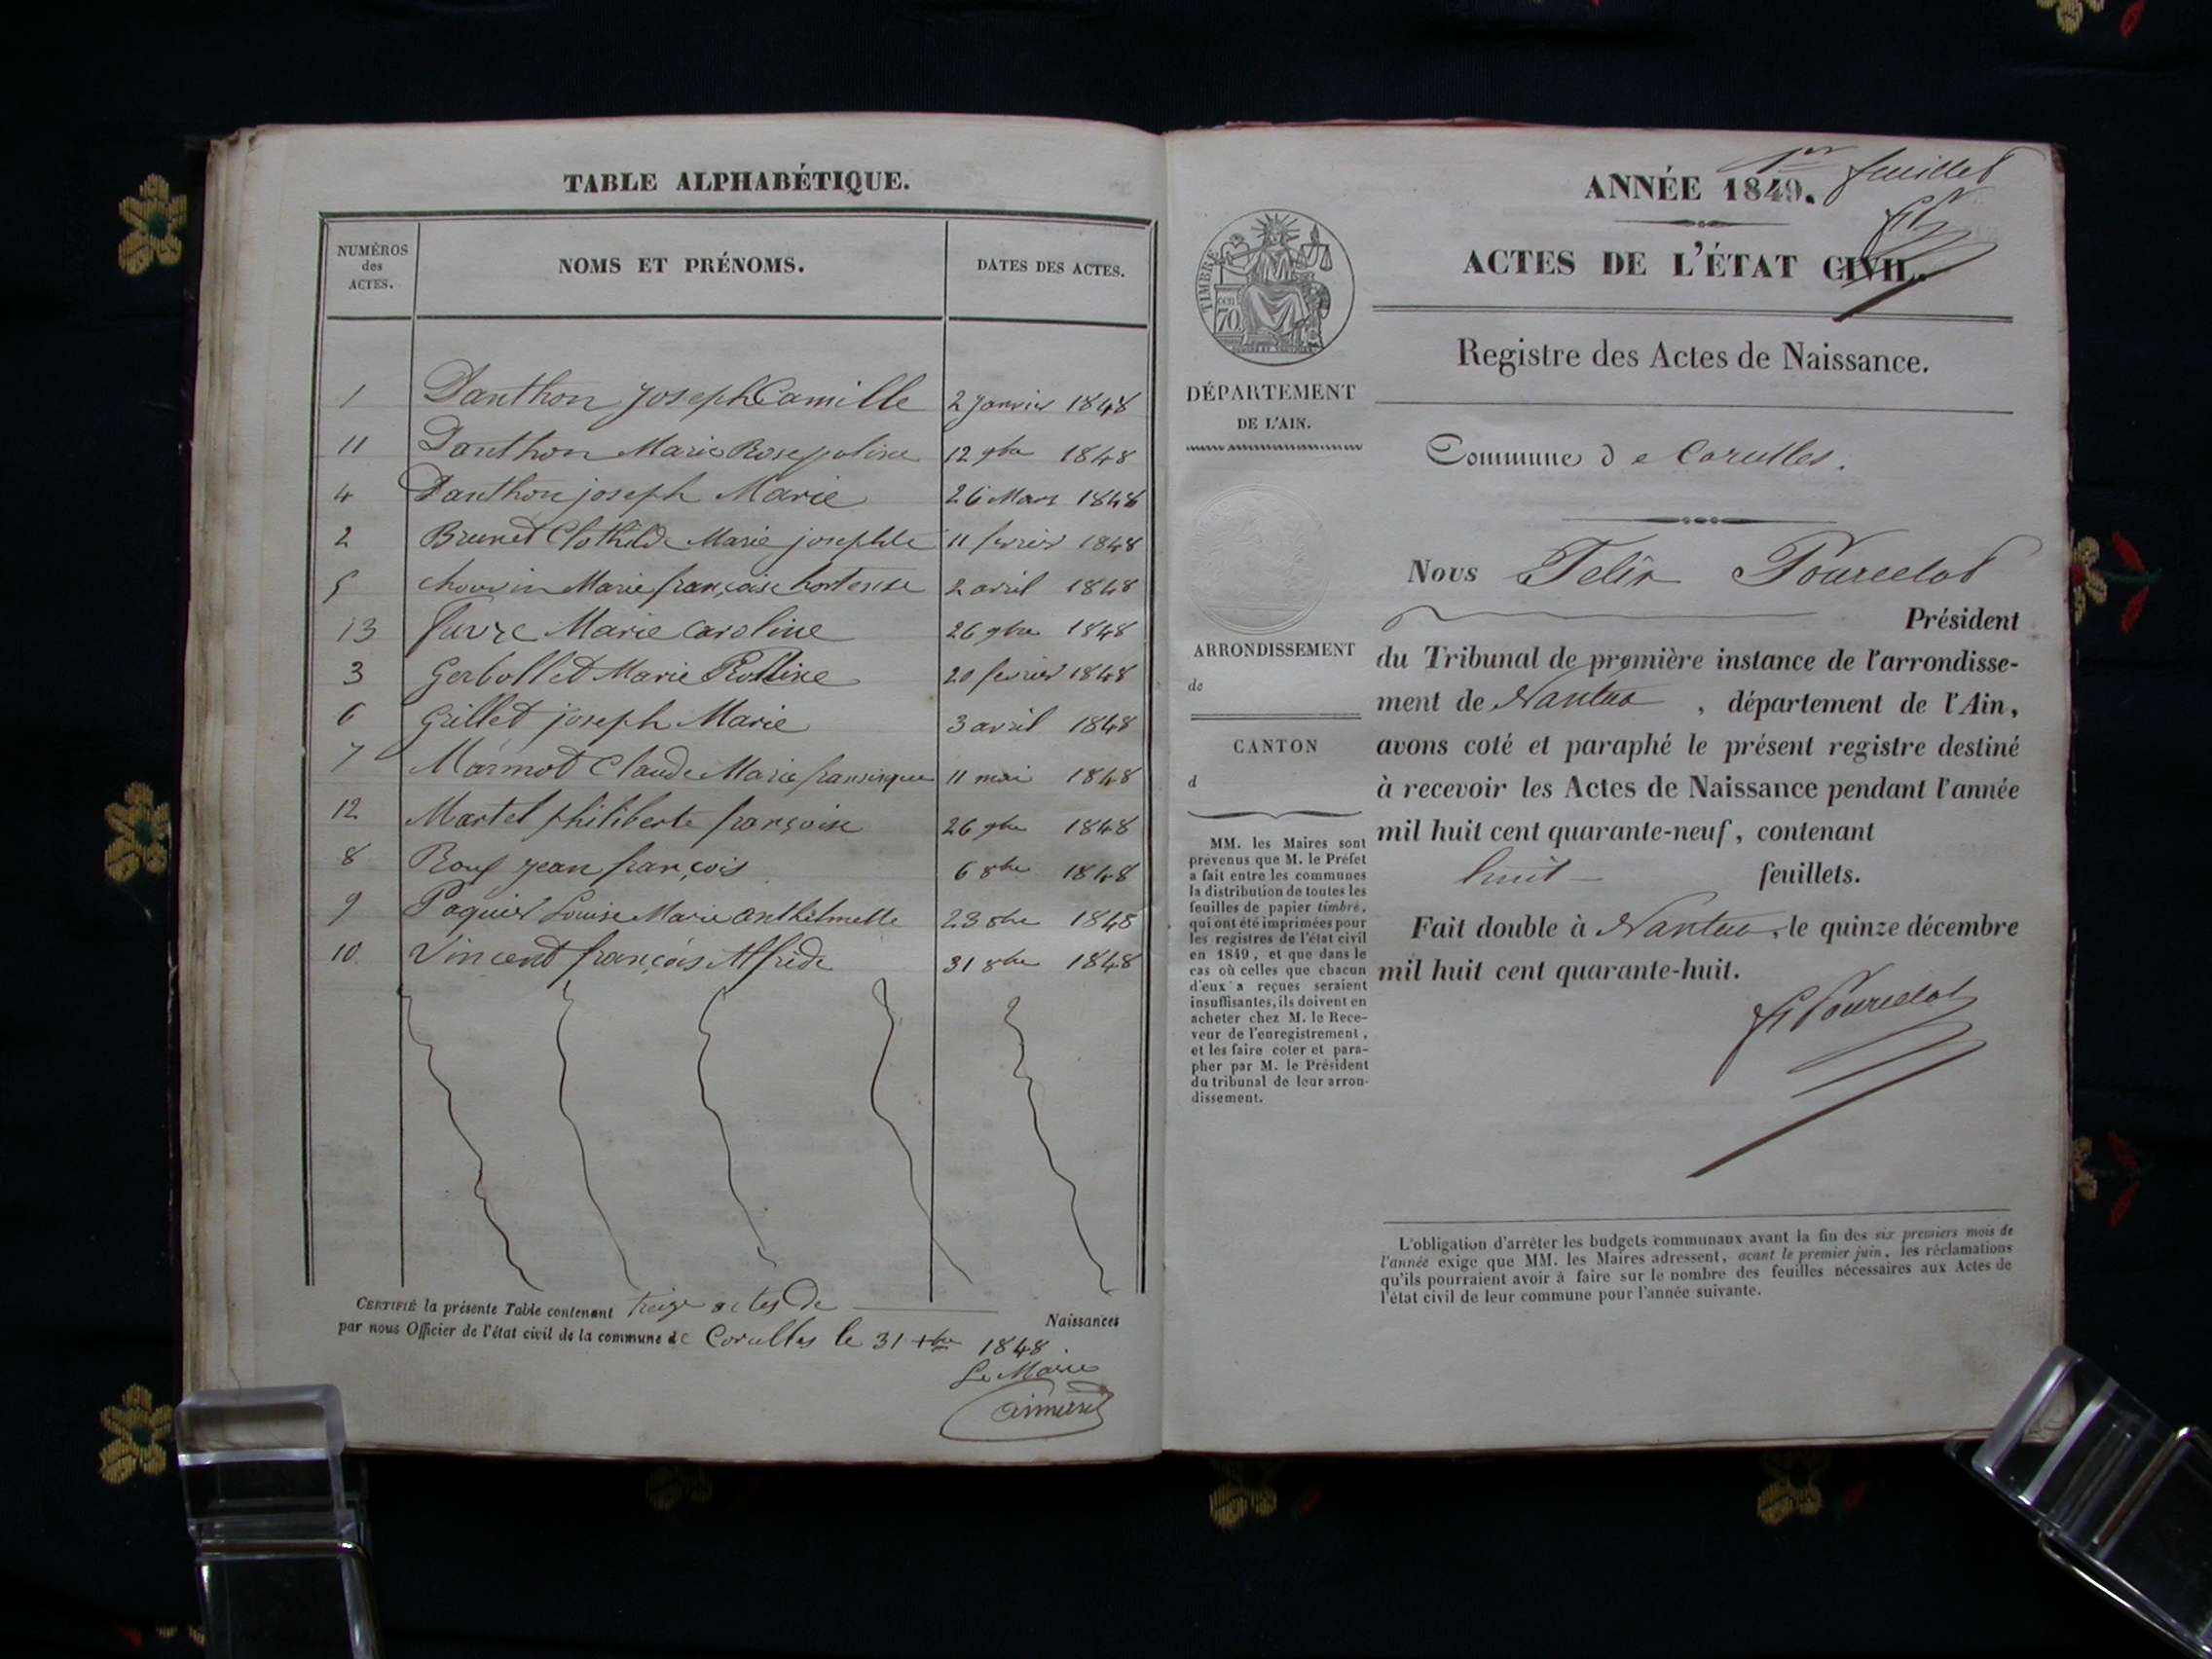 TABLE ALPHABÉTIQUE.
NUMÉROS des ACTES. NOMS ET PRÉNOMS. DATES DES ACTES.
1 Danthon Joseph Camille 2 janvier 1848
11 Danthon Marie Rose poline 12 9bre 1848
4 Danthon joseph Marie 26 Mars 1848
2 Brunet Clothilde Marie josephte 11 fevrier 1848
5 chouvin Marie françoise hortense 2 avril 1848
13 favre Marie Caroline 26 9bre 1848
3 Gerbollet Marie Rosline 20 fevrier 1848
6 Grillet joseph Marie 3 avril 1848
7 Marmot Claude Marie 11 mai 1848
12 Martel philiberte françoise 26 9bre 1848
8 Roux jean françois 6 8bre 1848
9 Paquier Louise Marie anthelmette 23 8bre 1848
10 Vincent françois Alfrede 31 8bre 1848
CERTIFIÉ la présente Table contenant treize actes de Naissances
par nous Officier de l'état civil de la commune de Corcelles le 31 xbre 1848
Le Maire
ANNÉE 1849. 1er feuillet
ACTES DE L'ÉTAT CIVIL.
Registre des Actes de Naissance.
TIMBRE
70 cen
DÉPARTEMENT
DE L'AIN.
ARRONDISSEMENT
de
CANTON
d
MM. les Maires sont
prévenus que M. le Préfet
a fait entre les communes
la distribution de toutes les
feuilles de papier timbré,
qui ont été imprimées pour
les registres de l'état civil
en 1849, et que dans le
cas où celles que chacun
d'eux a reçues seraient
insuffisantes, ils doivent en
acheter chez M. le Rece-
veur de l'enregistrement,
et les faire coter et para-
pher par M. le Président
du tribunal de leur arron-
dissement.
Commune de Corcelles.
Nous Felix Pourcelot
Président
du Tribunal de première instance de l'arrondisse-
ment de Nantua, département de l'Ain,
avons coté et paraphé le présent registre destiné
à recevoir les Actes de Naissance pendant l'année
mil huit cent quarante-neuf, contenant
huit feuillets.
Fait double à Nantua, le quinze décembre
mil huit cent quarante-huit.
F Pourcelot
L'obligation d'arrêter les budgets communaux avant la fin des six premiers mois de
l'année exige que MM. les Maires adressent, avant le premier juin, les réclamations
qu'ils pourraient avoir à faire sur le nombre des feuilles nécessaires aux Actes de
l'état civil de leur commune pour l'année suivante.